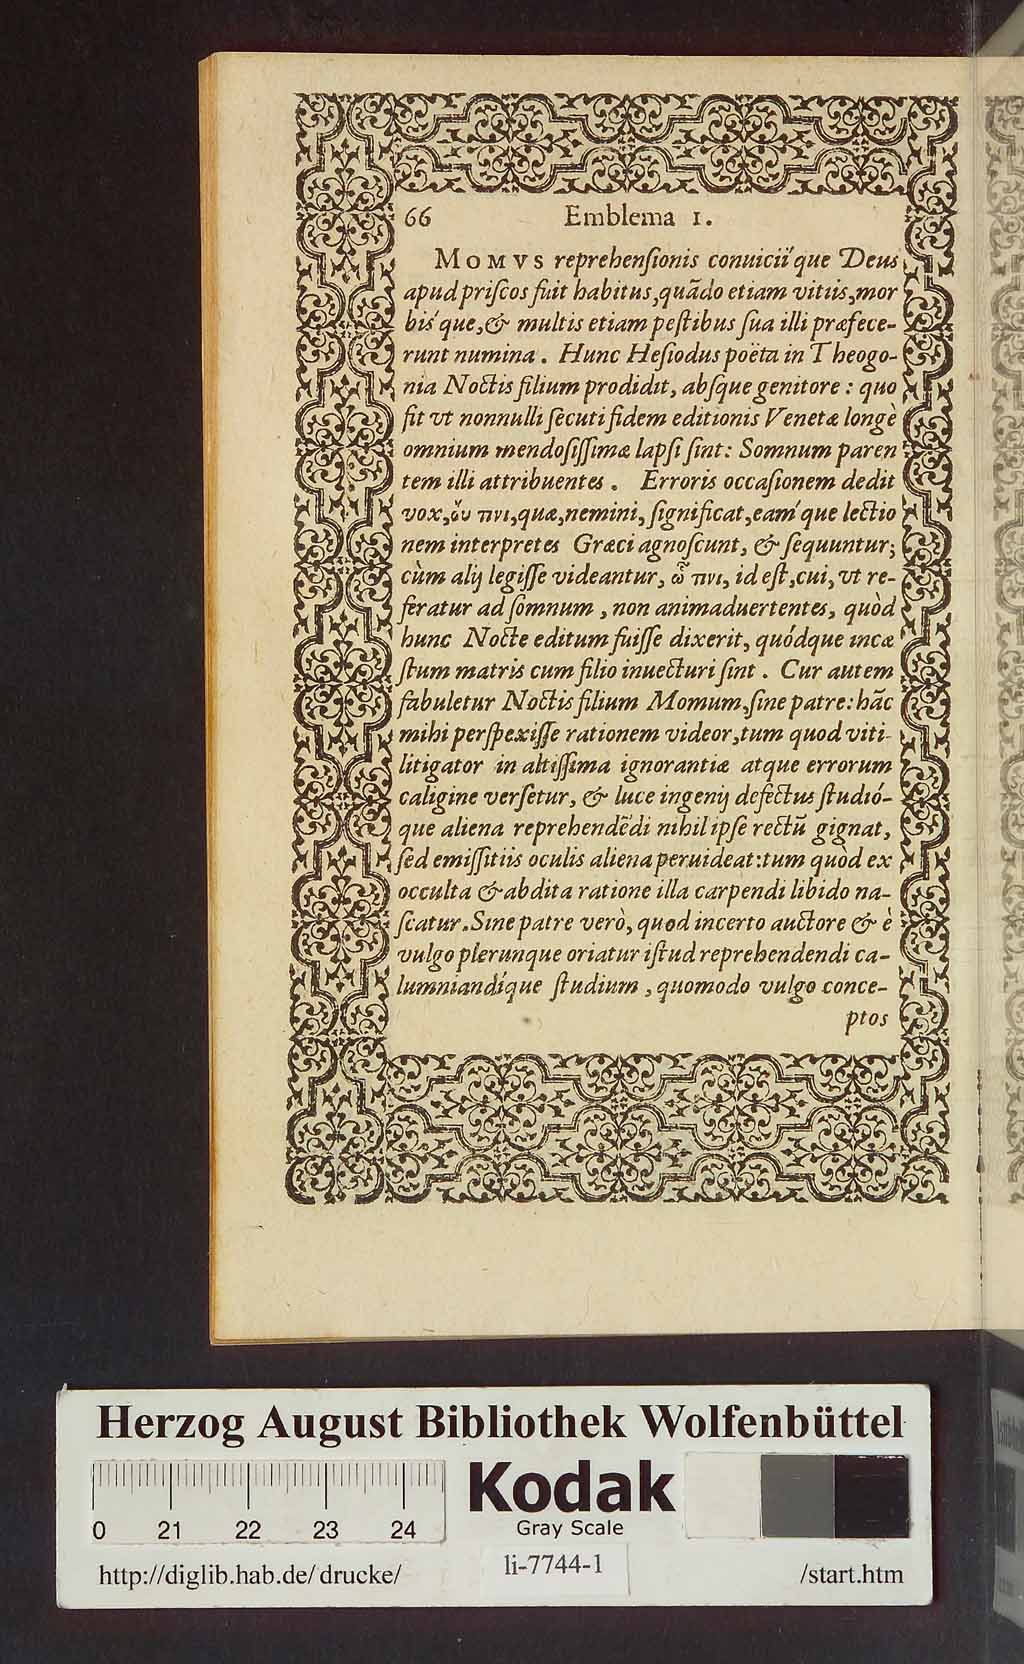 66 Emblema 1.
MOMVS reprehenſionis conuicii´que Deus
apud priſcos fuit habitus,quãdo etiam vitiis,mor
bis´que,& multis etiam peſtibus ſua illi præfece-
runt numina. Hunc Heſiodus poëta in Theogo-
nia Noctis filium prodidit, abſque genitore : quo
fit vt nonnulli ſecuti fidem editionis Venetæ longè
omnium mendoſiſſimæ lapſi ſint: Somnum paren
tem illi attribuentes. Erroris occaſionem dedit
vox,οὔ τινι,quæ,nemini, ſignificat,eam´que lectio
nem interpretes Græci agnoſcunt, & ſequuntur;
cùm alij legiſſe videantur, ᾧ τινι, id eſt,cui, vt re-
feratur ad ſomnum, non animaduertentes, quòd
hunc Nocte editum fuiſſe dixerit, quódque incæ
ſtum matris cum filio inuecturi ſint. Cur autem
fabuletur Noctis filium Momum,ſine patre: hãc
mihi perſpexiſſe rationem videor,tum quod viti-
litigator in altiſſima ignorantiæ atque errorum
caligine verſetur, & luce ingenij defectus ſtudió-
que aliena reprehendẽdi nihil ipſe rectũ gignat,
ſed emiſſitiis oculis aliena peruideat:tum quòd ex
occulta & abdita ratione illa carpendi libido na-
ſcatur.Sine patre verò, quod incerto auctore & è
vulgo plerunque oriatur iſtud reprehendendi ca-
lumniandíque ſtudium, quomodo vulgo conce-
ptos
Herzog August Bibliothek Wolfenbüttel
0 21 22 23 24
Kodak
Gray Scale
http://diglib.hab.de/ drucke/ li-7744-1 /start.htm